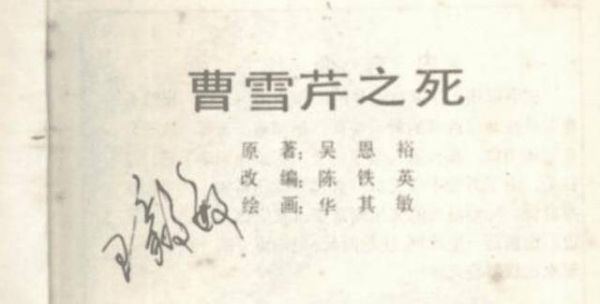 曹雪芹之死
原 著：吴 恩 裕
改 编：陈 铁 英
绘 画：华 其 敏